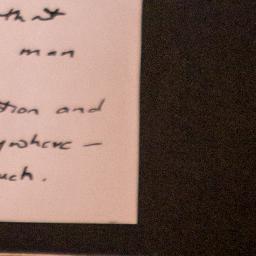 that
man
tion and
ywhere —
uch.